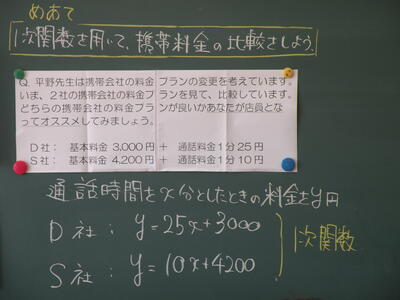 めあて
1次関数を用いて、携帯料金の比較をしよう。
Q. 平野先生は携帯会社の料金プランの変更を考えています。
いま、2社の携帯会社の料金プランを見て、比較しています。
どちらの携帯会社の料金プランが良いかあなたが店員とな
ってオススメしてみましょう。
D社： 基本料金 3,000円 ＋ 通話料金1分25円
S社： 基本料金 4,200円 ＋ 通話料金1分10円
通話時間をx分としたときの料金をy円
D社： y=25x+3000
S社： y=10x+4200
1次関数